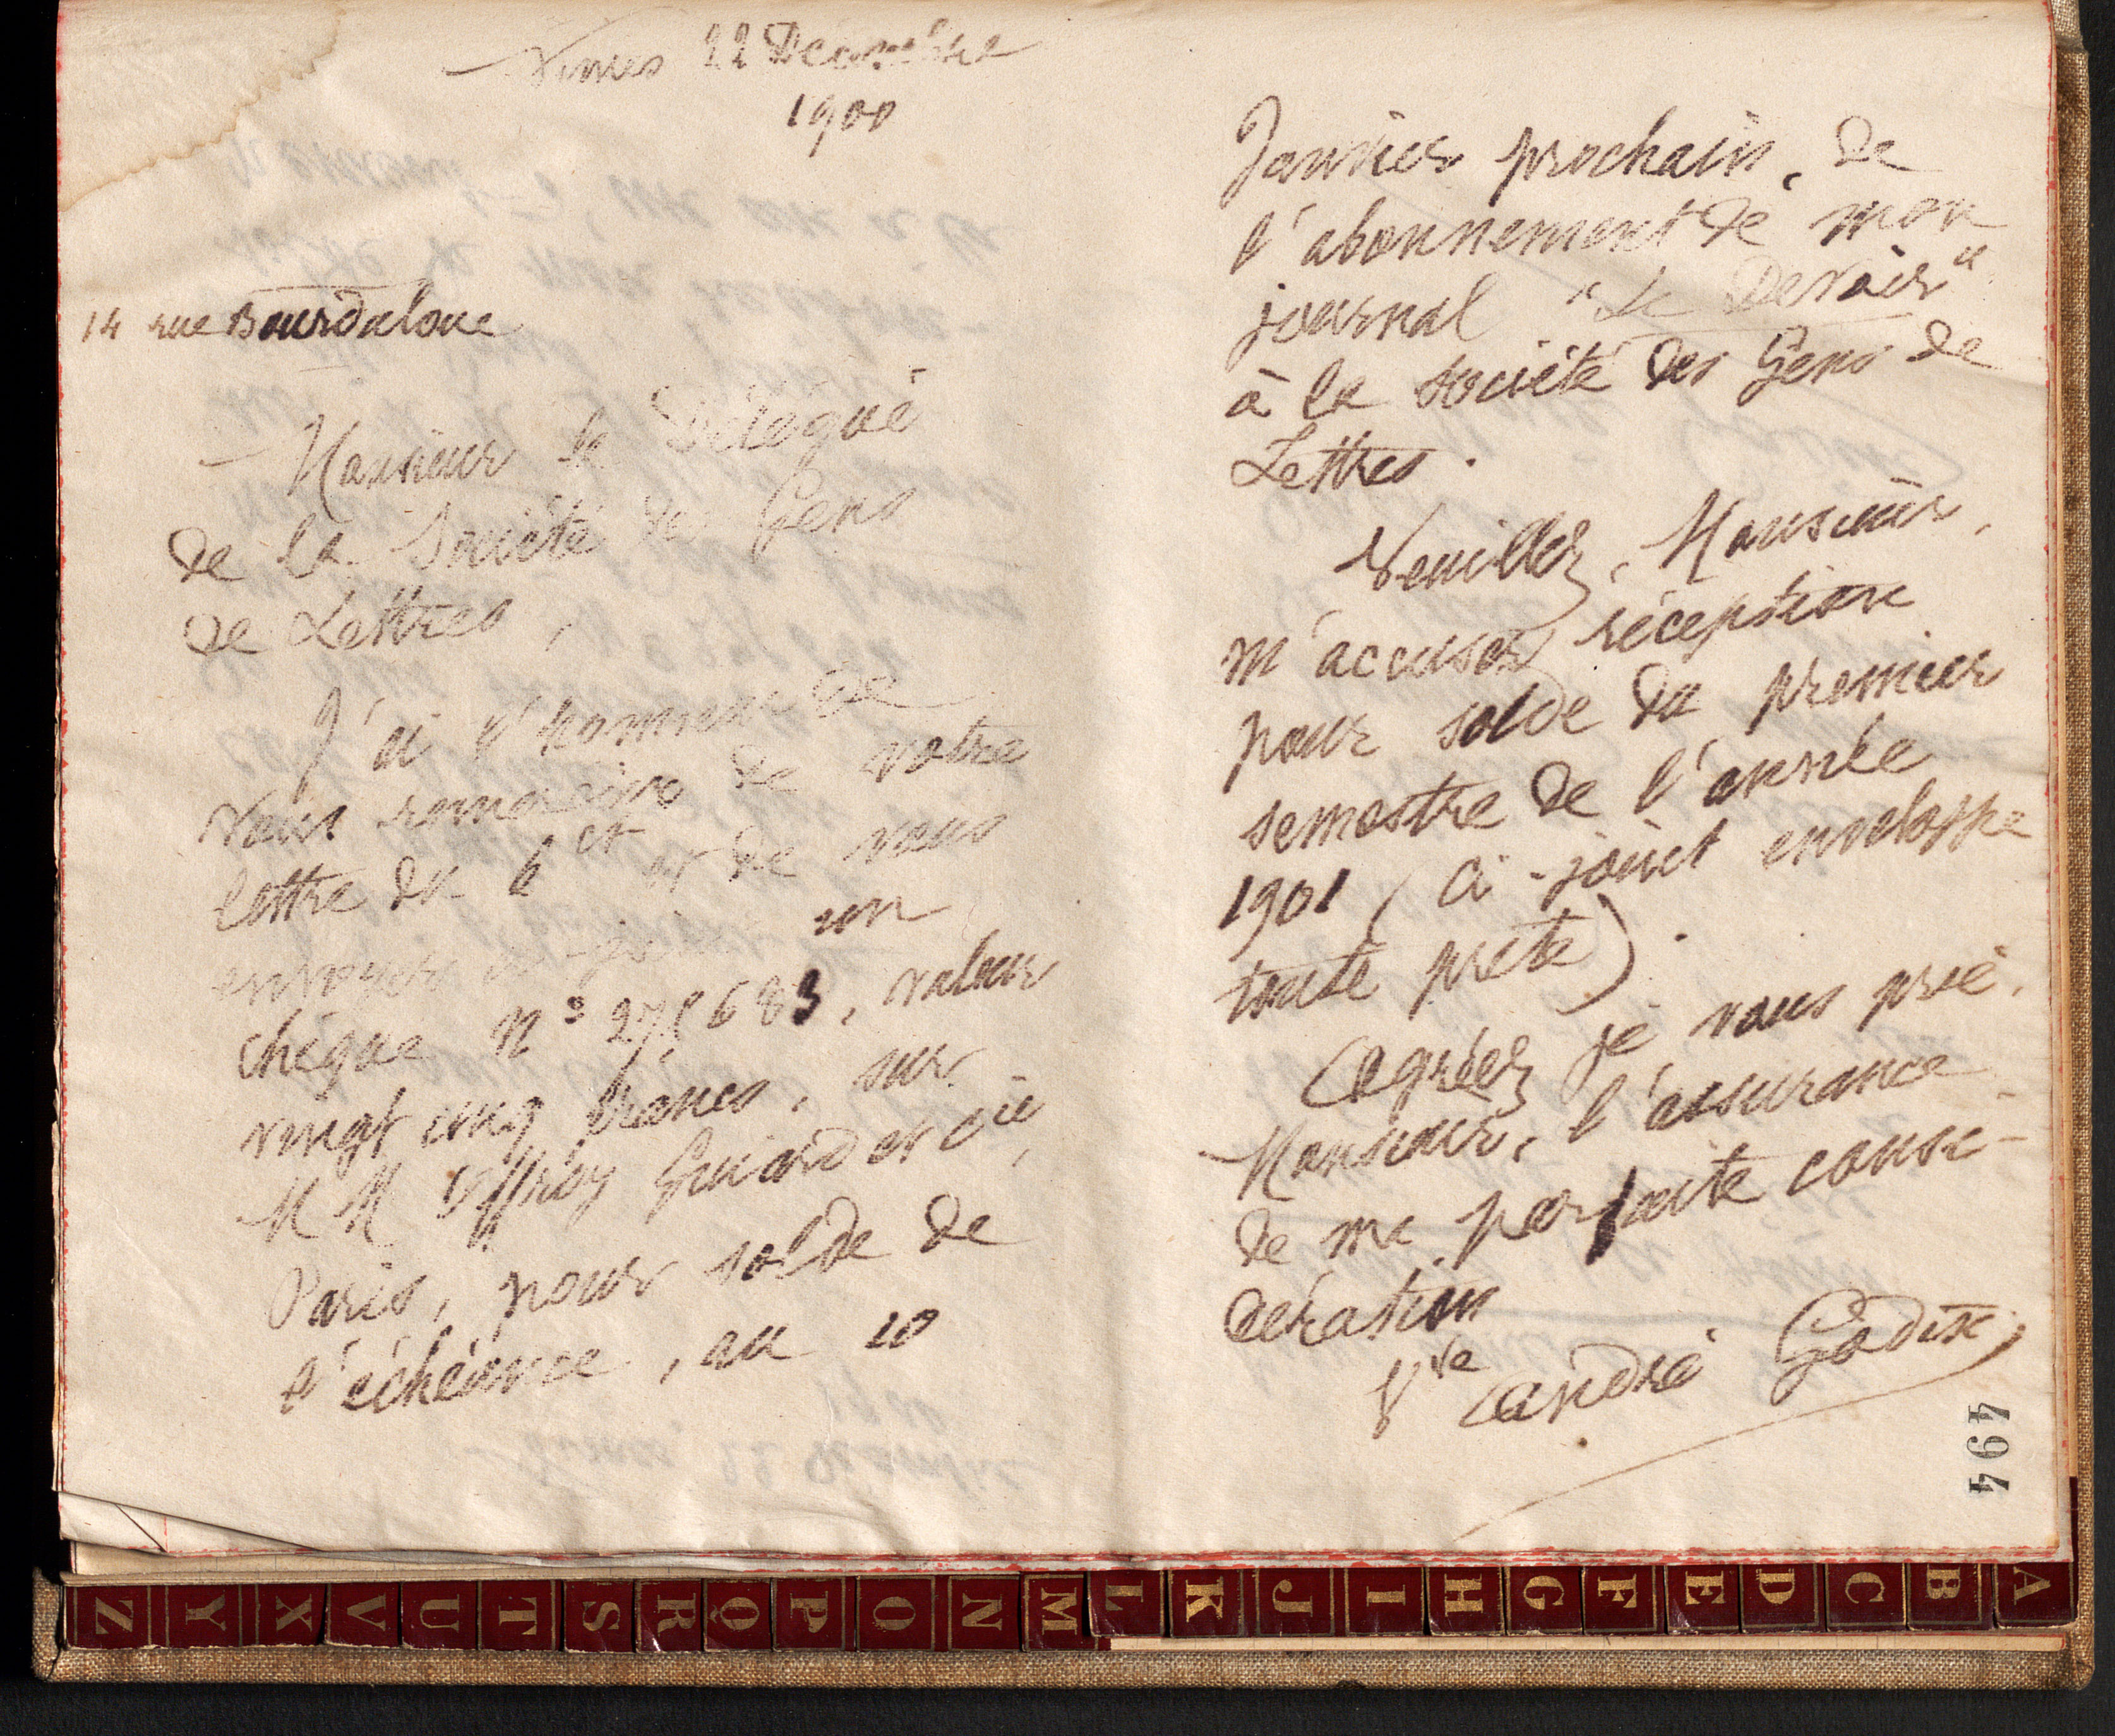 Nimes 22 Décembre
1900
14 rue Bourdaloue
Monsieur le Délégué
de la Société des Gens
de Lettres,
J'ai l'honneur de
vous remercier de votre
lettre du 6 ct et de vous
envoyer ci-joint un
chèque n° 278683, valeur
vingt cinq francs, sur
MM Offroy Guiard et cie,
Paris, pour solde de
l'échéance, au 10
Janvier prochain, de
l'abonnement de mon
journal "Le Devoir"
à la société des Gens de
Lettres.
Veuillez, Monsieur,
m'accuser réception
pour solde du premier
semestre de l'année
1901 (ci-joint enveloppe
toute prête).
Agréez je vous prie,
Monsieur, l'assurance
de ma parfaite consi-
dération
Vve André Godin
494
Z Y X V U T S R Q P O N M L K J I H G F E D C B A